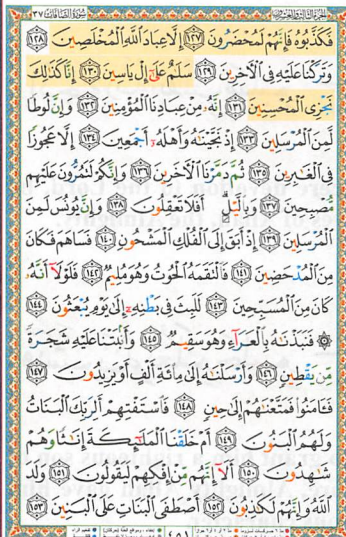 الجزء الثالث والعشرون سورة الصافات ٣٧
فَكَذَّبُوهُ فَإِنَّهُمْ لَمُحْضَرُونَ ١٢٧ إِلَّا عِبَادَ ٱللَّهِ ٱلْمُخْلَصِينَ ١٢٨
وَتَرَكْنَا عَلَيْهِ فِى ٱلْأَخِرِينَ ١٢٩ سَلَٰمٌ عَلَىٰٓ إِلْ يَاسِينَ ١٣٠ إِنَّا كَذَٰلِكَ
نَجْزِى ٱلْمُحْسِنِينَ ١٣١ إِنَّهُۥ مِنْ عِبَادِنَا ٱلْمُؤْمِنِينَ ١٣٢ وَإِنَّ لُوطًا
لَّمِنَ ٱلْمُرْسَلِينَ ١٣٣ إِذْ نَجَّيْنَٰهُ وَأَهْلَهُۥٓ أَجْمَعِينَ ١٣٤ إِلَّا عَجُوزًا
فِى ٱلْغَٰبِرِينَ ١٣٥ ثُمَّ دَمَّرْنَا ٱلْأَخَرِينَ ١٣٦ وَإِنَّكُمْ لَتَمُرُّونَ عَلَيْهِم
مُّصْبِحِينَ ١٣٧ وَبِٱلَّيْلِ ۗ أَفَلَا تَعْقِلُونَ ١٣٨ وَإِنَّ يُونُسَ لَمِنَ
ٱلْمُرْسَلِينَ ١٣٩ إِذْ أَبَقَ إِلَى ٱلْفُلْكِ ٱلْمَشْحُونِ ١٤٠ فَسَاهَمَ فَكَانَ
مِنَ ٱلْمُدْحَضِينَ ١٤١ فَٱلْتَقَمَهُ ٱلْحُوتُ وَهُوَ مُلِيمٌ ١٤٢ فَلَوْلَآ أَنَّهُۥ
كَانَ مِنَ ٱلْمُسَبِّحِينَ ١٤٣ لَلَبِثَ فِى بَطْنِهِۦٓ إِلَىٰ يَوْمِ يُبْعَثُونَ ١٤٤
۞ فَنَبَذْنَٰهُ بِٱلْعَرَآءِ وَهُوَ سَقِيمٌ ١٤٥ وَأَنۢبَتْنَا عَلَيْهِ شَجَرَةً
مِّن يَقْطِينٍ ١٤٦ وَأَرْسَلْنَٰهُ إِلَىٰ مِا۟ئَةِ أَلْفٍ أَوْ يَزِيدُونَ ١٤٧
فَـَٔامَنُوا۟ فَمَتَّعْنَٰهُمْ إِلَىٰ حِينٍ ١٤٨ فَٱسْتَفْتِهِمْ أَلِرَبِّكَ ٱلْبَنَاتُ
وَلَهُمُ ٱلْبَنُونَ ١٤٩ أَمْ خَلَقْنَا ٱلْمَلَٰٓئِكَةَ إِنَٰثًا وَهُمْ
شَٰهِدُونَ ١٥٠ أَلَآ إِنَّهُم مِّنْ إِفْكِهِمْ لَيَقُولُونَ ١٥١ وَلَدَ
ٱللَّهُ وَإِنَّهُمْ لَكَٰذِبُونَ ١٥٢ أَصْطَفَى ٱلْبَنَاتِ عَلَى ٱلْبَنِينَ ١٥٣